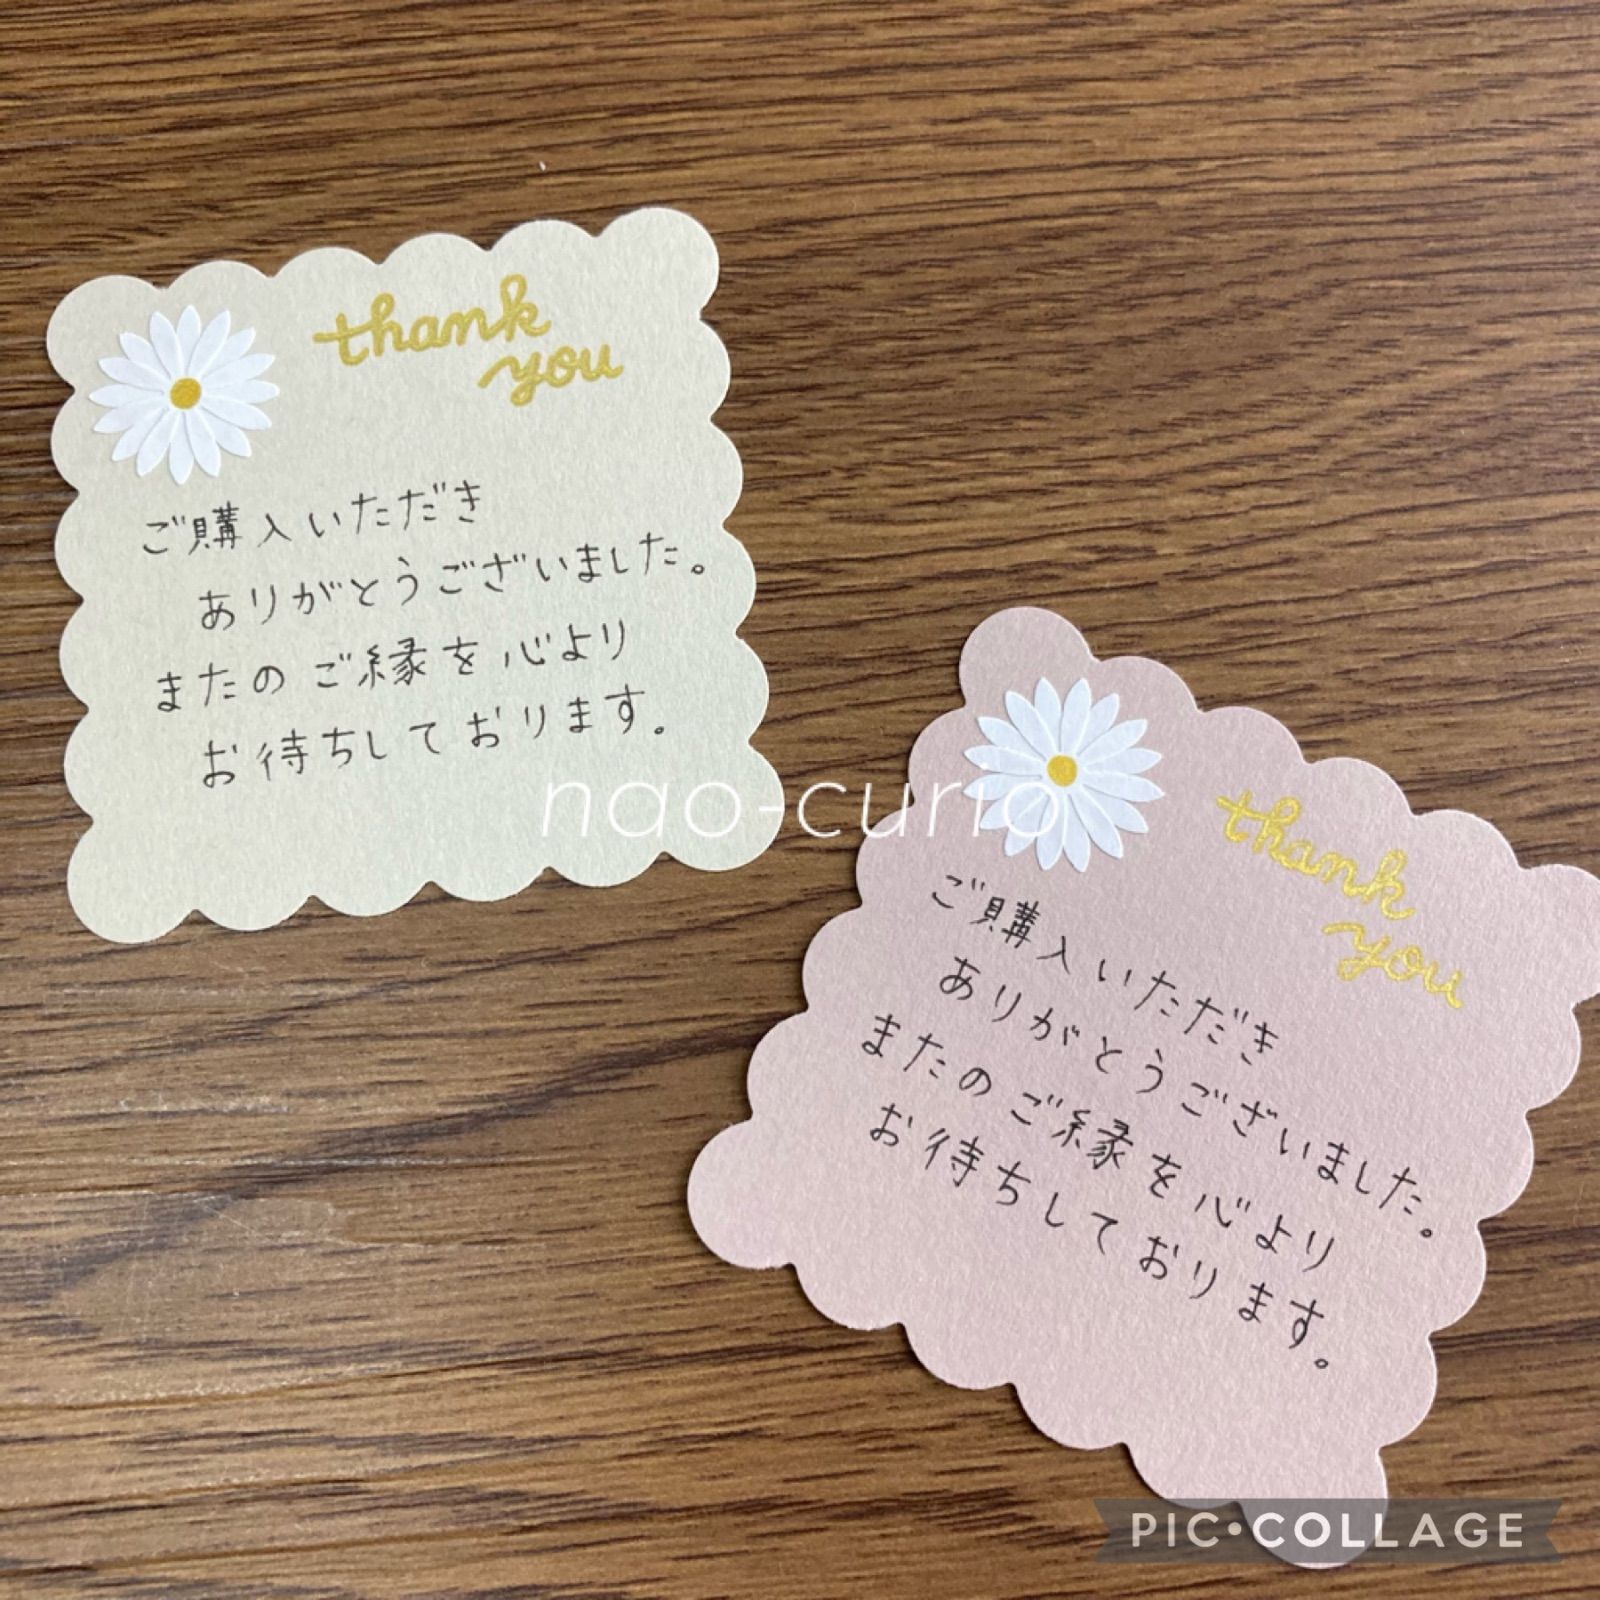 thank
you
ご購入いただき
ありがとうございました。
またのご縁を心より
お待ちしております。
nao-curio
thank
you
ご購入いただき
ありがとうございました。
またのご縁を心より
お待ちしております。
PIC•COLLAGE